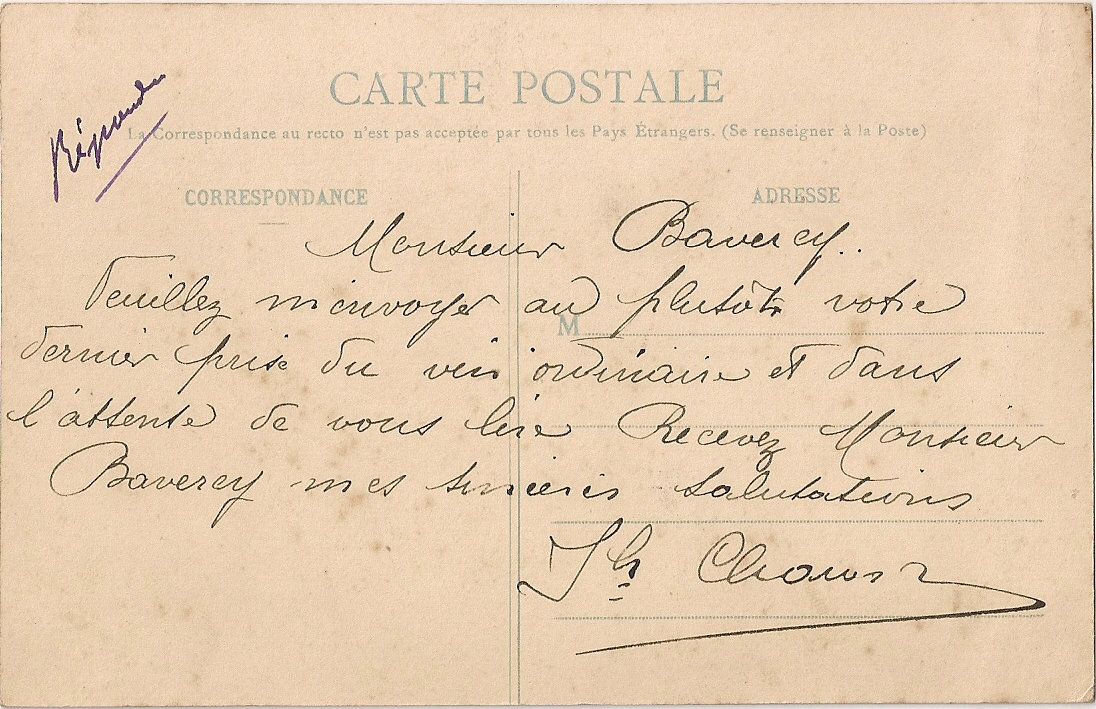 Répondu
CARTE POSTALE
La Correspondance au recto n'est pas acceptée par tous les Pays Étrangers. (Se renseigner à la Poste)
CORRESPONDANCE
ADRESSE
Monsieur Baverey.
Veuillez m'envoyer au plutôt votre
M
dernier prix du vin ordinaire et dans
l'attente de vous lire Recevez Monsieur
Baverey mes sincères salutations
Jh